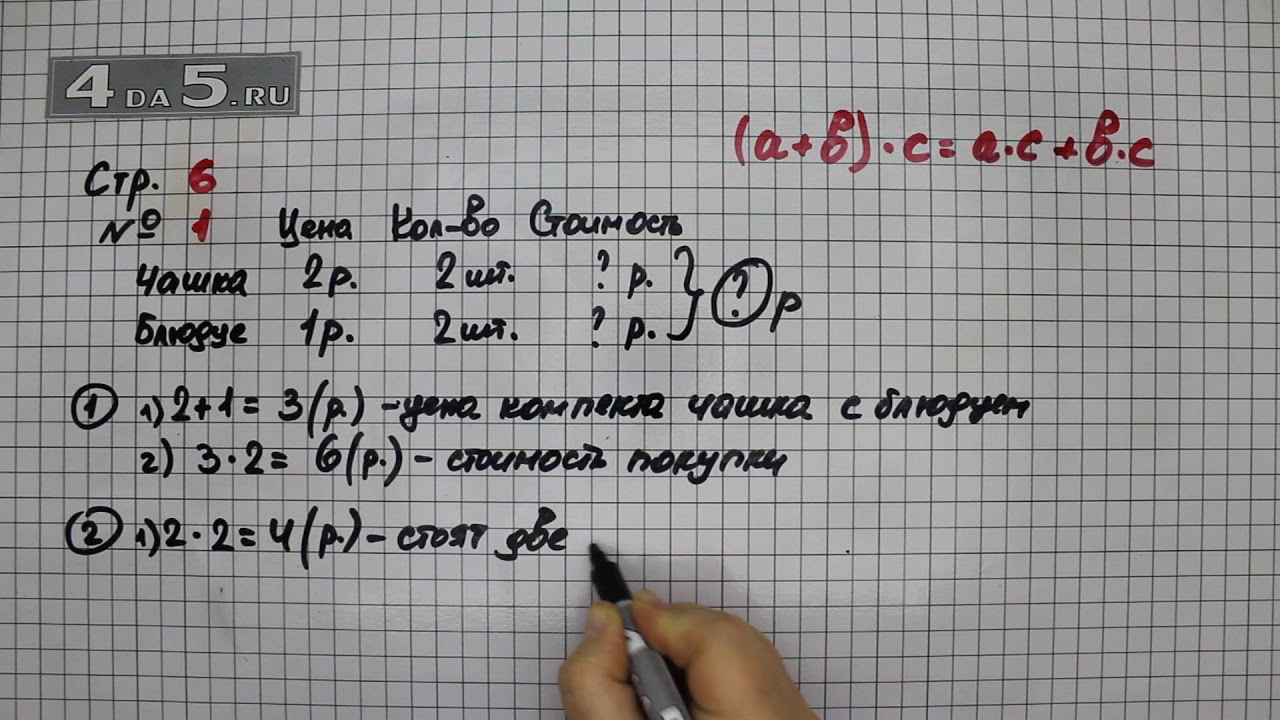 4 DA 5.RU
(а+в)·с=а·с+в·с
Стр. 6
№ 1 Цена Кол-во Стоимость
Чашка 2р. 2 шт. ? р.
Блюдце 1р. 2 шт. ? р.
? р
1 1) 2+1= 3(р.) – цена компекта чашка с блюдцем
2) 3·2= 6(р.) – стоимость покупки
2 1) 2·2=4(р.) – стоят две